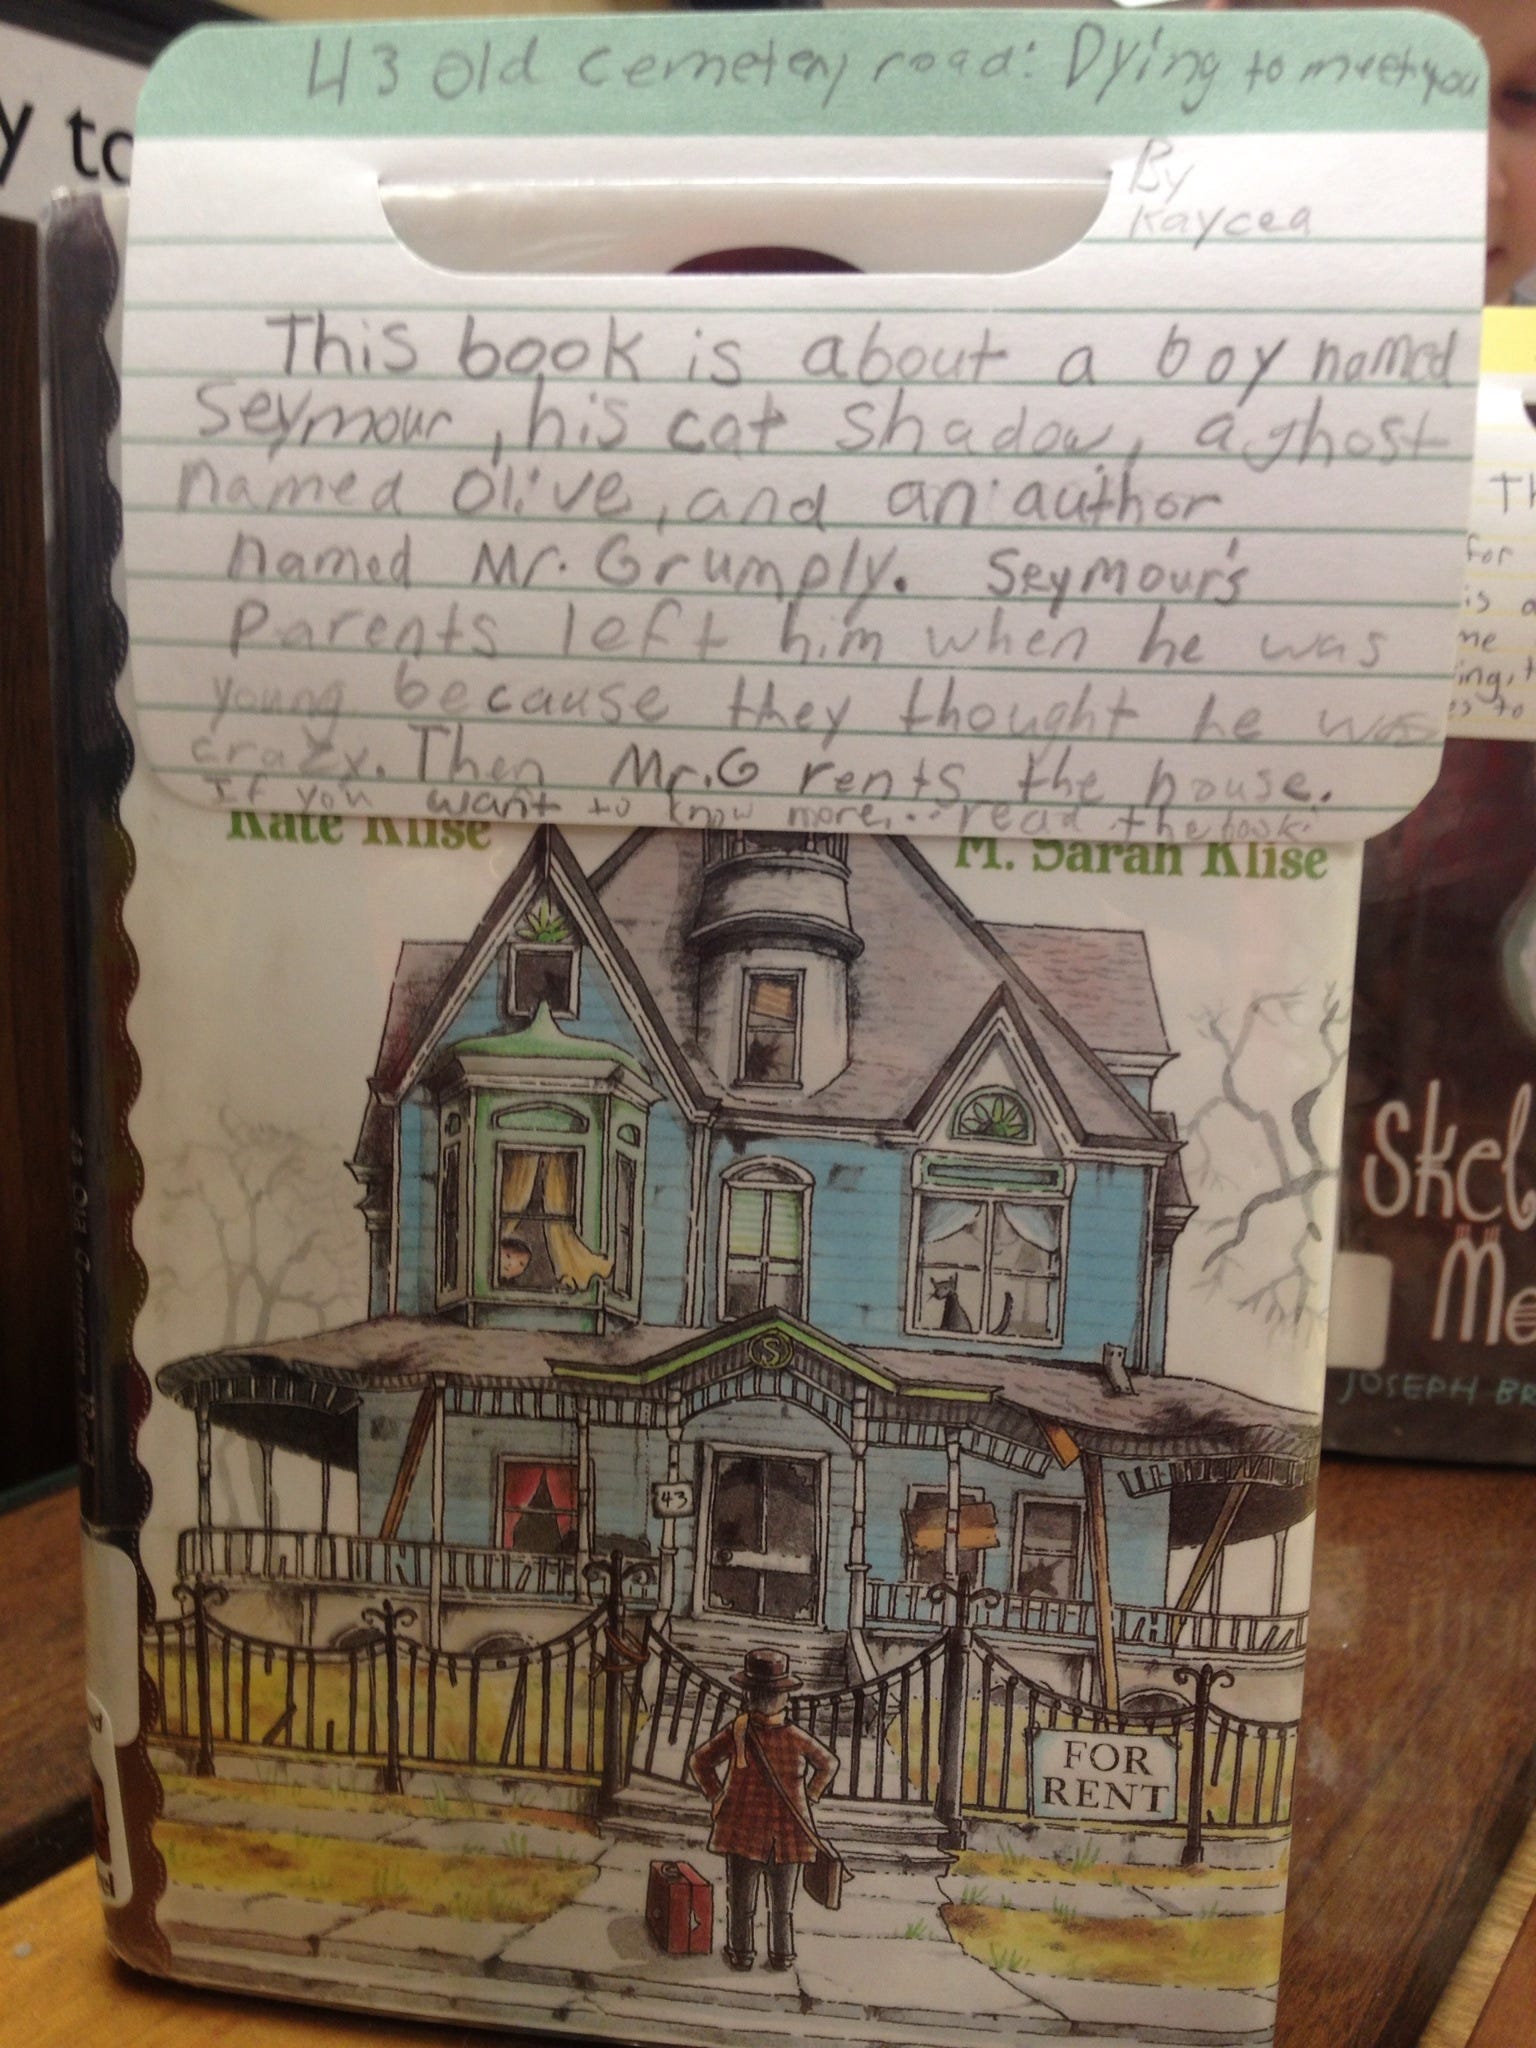 43 old cemetery road: Dying to meet you
By
Kaycea
This book is about a boy named
Seymour, his cat shadow, a ghost
named Olive, and an author
named Mr. Grumply. Seymour's
Parents left him when he was
young because they thought he was
crazy. Then Mr. G rents the house.
If you want to know more... read the book!
Kate Klise
M. Sarah Klise
S
43
FOR
RENT
y to
Th
for
is a
me
ing, t
to
Skel
Me
JOSEPH BR
43 Old Cemetery Road